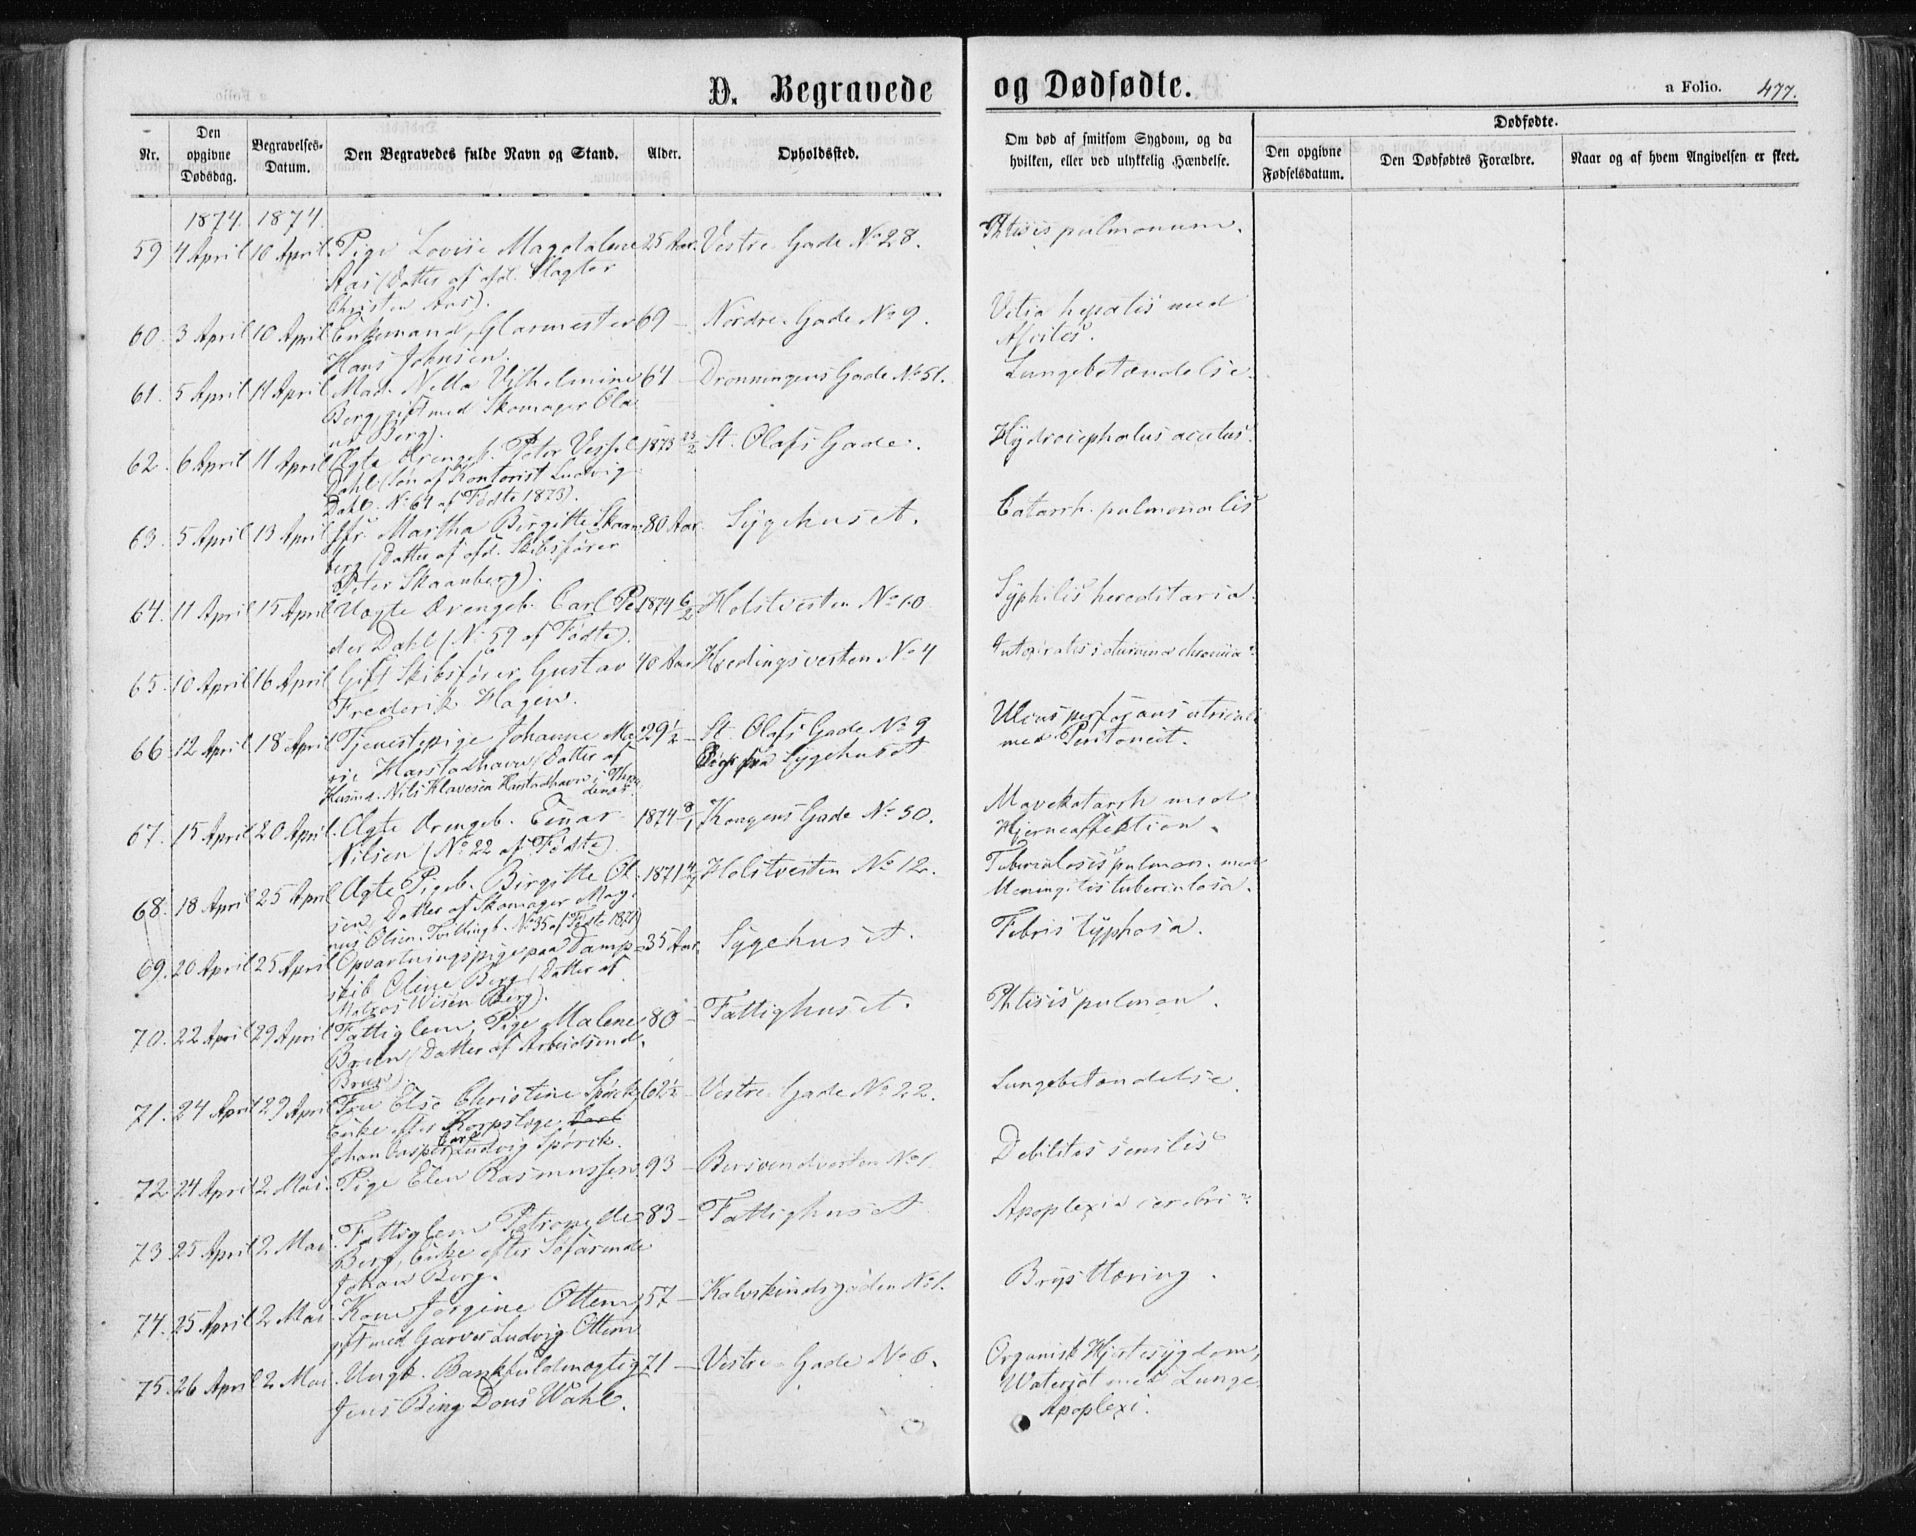 D. Begravede og Dødsfødte.
a Folio. 477.
Nr.
Den opgivne Dødsdag.
Begravelses-Datum.
Den Begravedes fulde Navn og Stand.
Alder.
Opholdssted.
Om død af smitsom Sygdom, og da hvilken, eller ved ulykkelig Hændelse.
Dødsfødte.
Den opgivne Fødselsdatum.
Den Dødsfødtes Forældre.
Naar og af hvem Angivelsen er skeet.
1874. 1874.
59 4 April 10 April. Pige Lovise Magdalene 25 Aar. Vestre Gade No 28. Phtisis pulmonum.
Aas (Datter af afd. Slagter
Christen Aas).
60. 3 April 10 April Enkemand, Glarmester 69 — Nordre Gade No 9. Vitia hepatis med
Hans Johnsen. Ascites.
61. 5 April 11 April Mad. Nella Vilhelmine 61 — Dronningens Gade No 51. Lungebetændelse.
Berg, gift med Skomager Ola
us Berg).
62. 6 April 11 April Ægte Drengeb. Peter Vessel 1873 23/2 St. Olafs Gade. Hydrocephalus acutus.
Dahl (Søn af Kontorist Ludvig
Dahl. No 64 af Fødte 1873).
63. 5 April 13 April Jfr. Martha Birgitte Skaan 80 Aar. Sygehuset. Catarrh. pulmonalis
berg (Datter af afd. Skibsfører
Peter Skaanberg).
64. 11 April 15 April Uægte Drengeb. Carl Pe 1874 6/2 Holstvesten No 10 Syphilis hereditaria
der Dahl (No 59 af Fødte).
65. 10 April 16 April Gift Skibsfører Gustav 40 Aar Hoedingsvesten No 4 chronica
Frederik Hagen.
66. 12 April 18 April Tjenestepige Johanne Ma 29 1/2 — St. Olafs Gade No 9 Ulcus perforans
rie Harstadhavn (Datter af Sygehuset med Peritoneit.
Husmd. Nils Klavesen Harstadhavn
67. 15 April 20 April. Ægte Drengeb. Einar 1874 8/1 Kongens Gade No 50. Mavekatarrh med
Nilsen (No 22 af Fødte). Hjerneaffektion.
68. 18 April 25 April Ægte Pigeb. Birgitte Ol 1871 4/7 Holstvesten No 12. Tuberculosis pulmon. med
sen, Datter af Skomager Mag Meningitis tuberculosa.
nus Olsen. Tvillingb. No 35 af Fødte 1871)
69. 20 April 25 April Opvartningspige paa Damp 35 Aar. Sygehuset. Febris typhosa.
skib Oline Berg (Datter af
Matros Berg).
70. 22 April 29 April Fattiglem, Pige Malene 80 — Fattighuset. Phtisis pulmon.
Bruun (Datter af Arbeidsmd.
Bruun)
71. 24 April 29 April Fru Else Christine Spörck, 62 1/2 — Vestre Gade No 22. Lungebetændelse
Enke efter Korpslæge Carl
Johan Casper Carl Ludvig Spörck.
72 24 April 2 Mai. Pige Elen Rasmussen 93 — Bersvendvesten No 1. Debilitas senilis
73 25 April 2 Mai. Fattiglem Petronelle 83 — Fattighuset Apoplexia cerebri
Berg, Enke efter Søfarende
Johan Berg.
74. 25 April 2 Mai. Kone Jørgine Ottem, 57 — Kalvskindsgaden No 1. Brysttæring.
gift med Garver Ludvig Ottem
75. 26 April 2 Mai. Ungk. Bankfuldmægtig 71 — Vestre Gade No 6. Organisk Hjertesygdom,
Jens Bing Dons Wahl. Watersot med Lunge
Apoplexi.